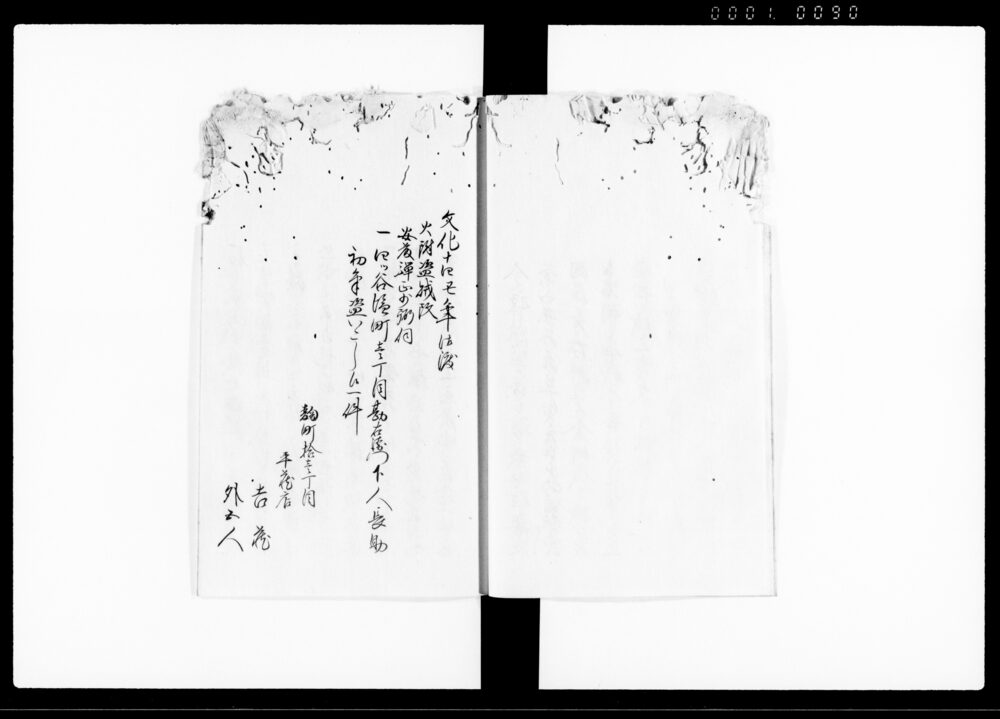 0001 0090
文化十四丑年御渡
火附盗賊改
安藤弾正少弼伺
一四ツ谷塩町壱丁目勘右衛門下人長助
初筆盗いたし候一件
麹町拾壱丁目
平蔵店
吉蔵
外五人